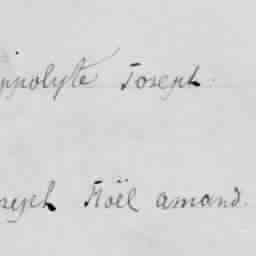 ippolyte Joseph
oseph Noël amand.